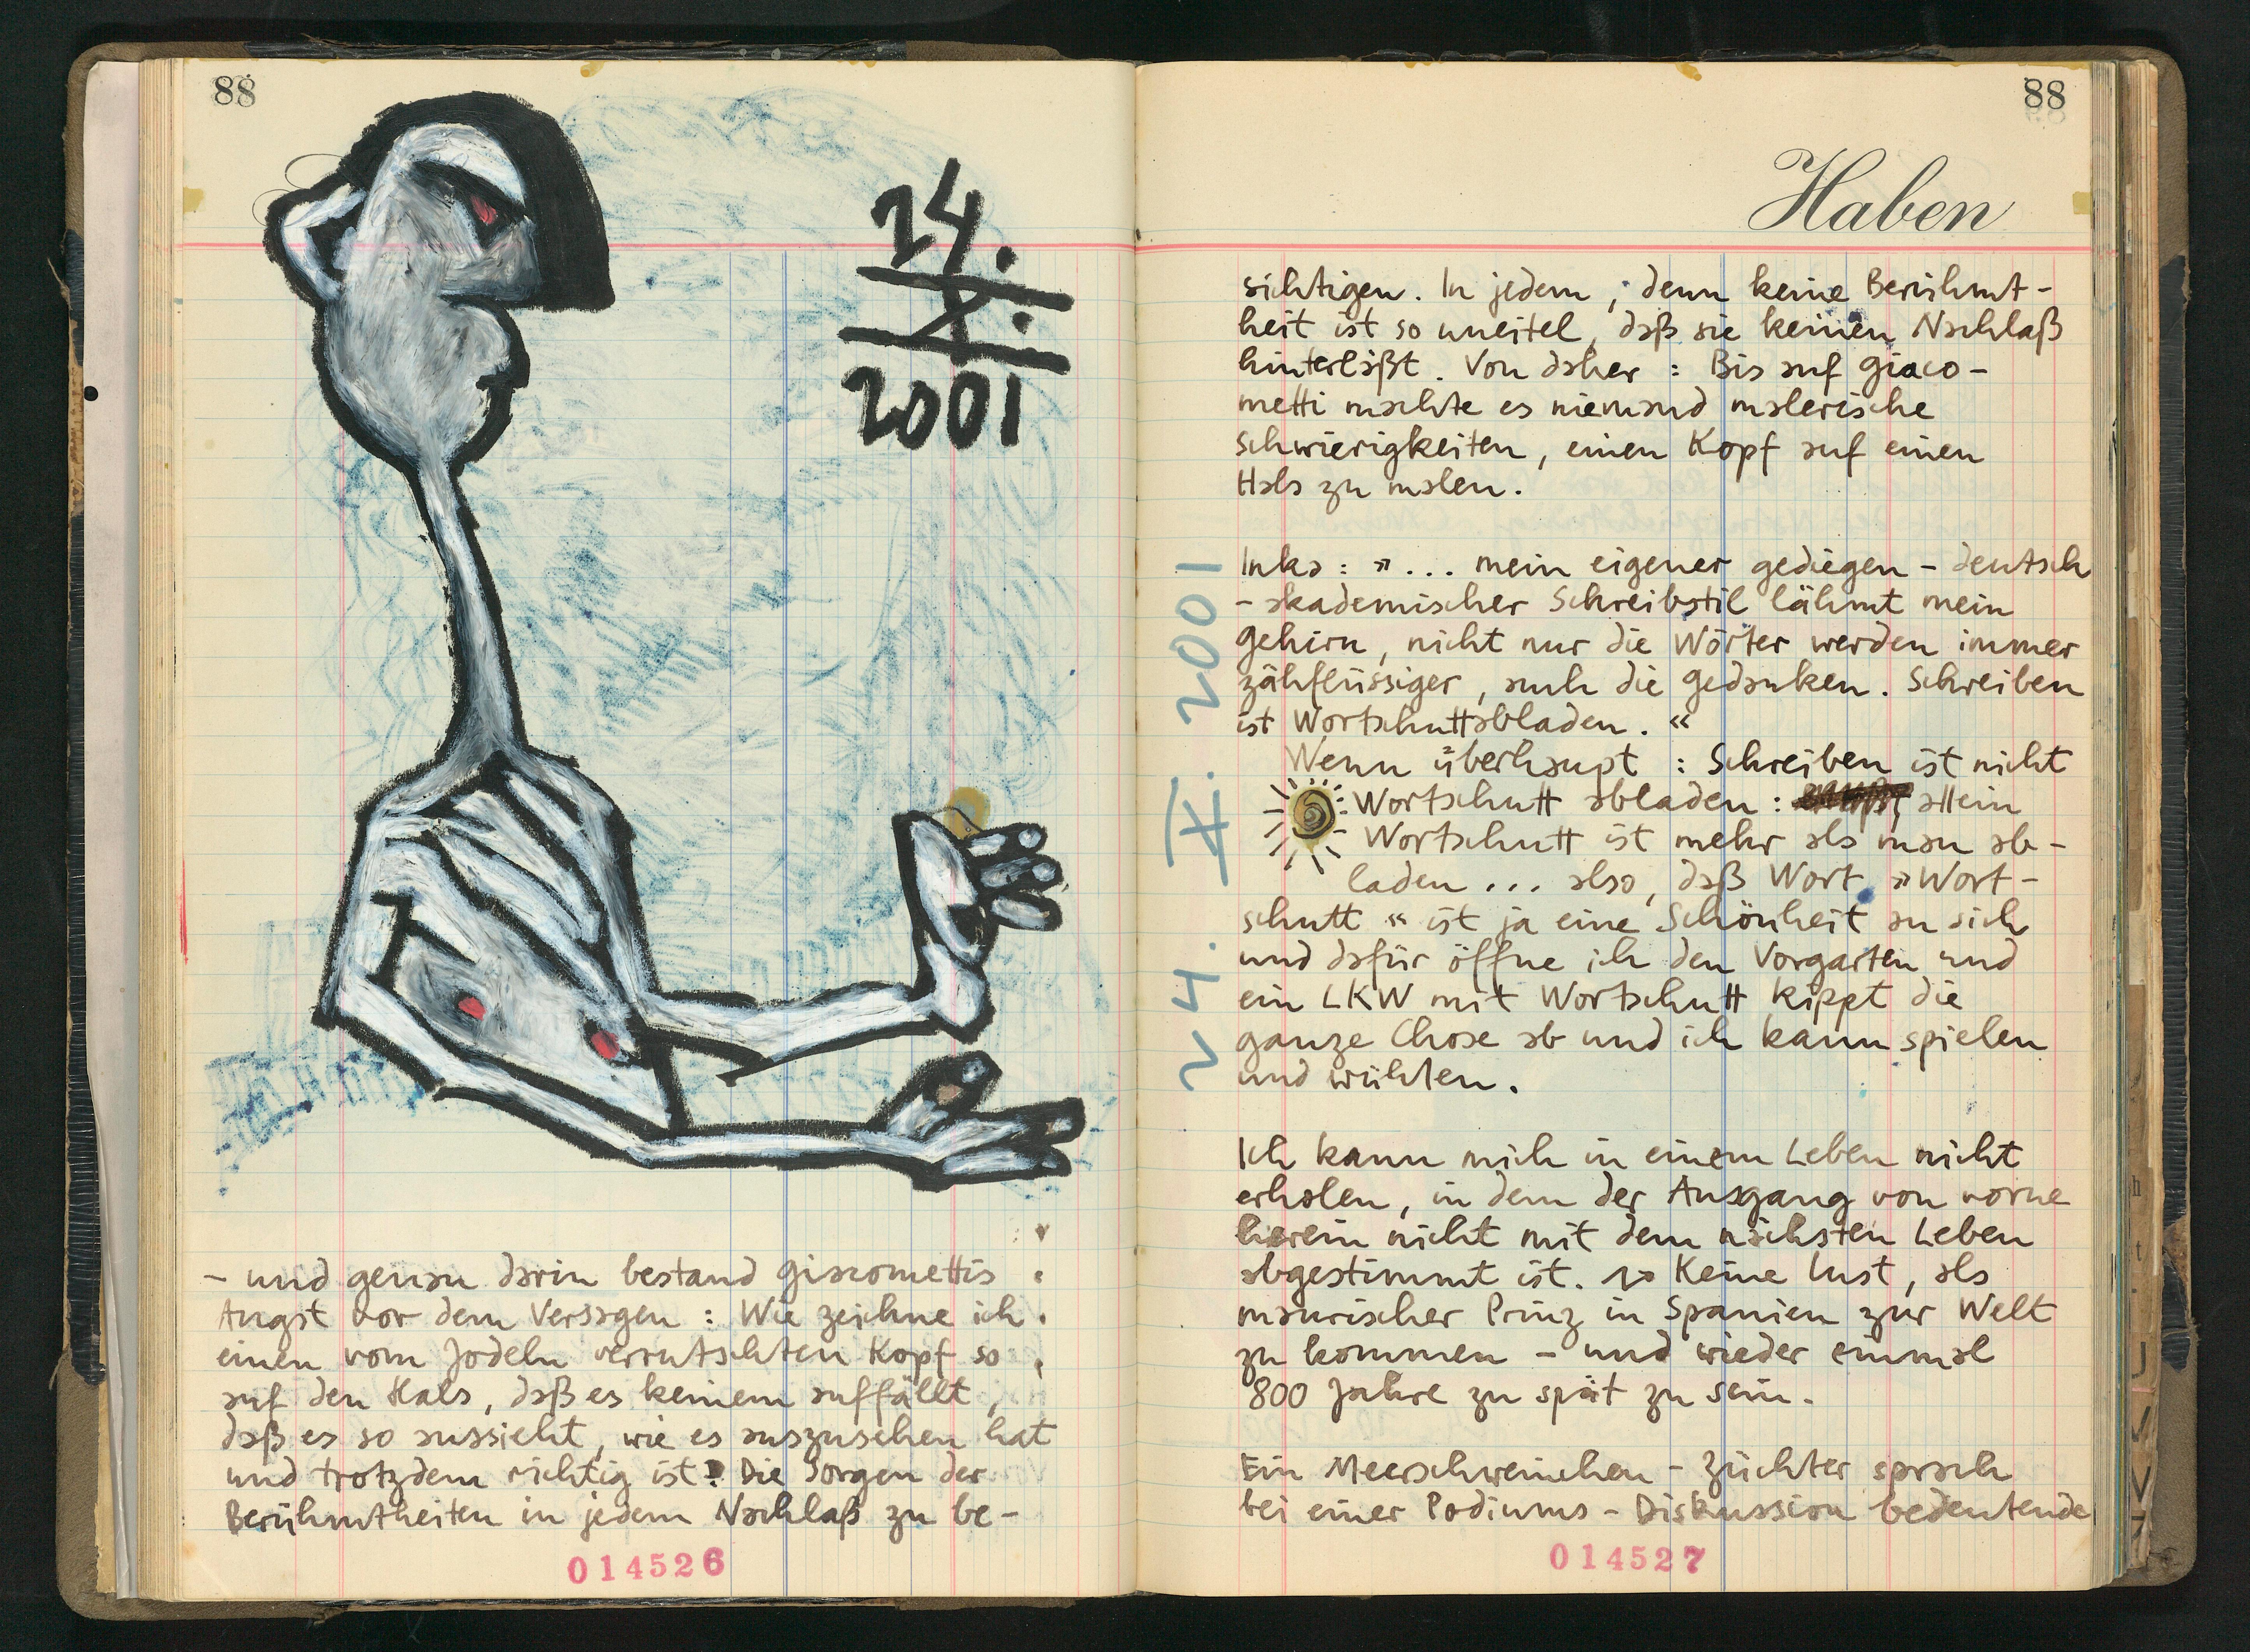 88
24.
X.
2001
– und genau darin bestand Giacomettis
Angst vor dem Versagen : Wie zeichne ich
einen vom Jodeln verrutschten Kopf so
auf den Hals, daß es keinem auffällt,
daß es so aussieht, wie es auszusehen hat
und trotzdem richtig ist? Die Sorgen der
Berühmtheiten in jedem Nachlaß zu be-
014526
88
Haben
sichtigen. In jedem, denn keine Berühmt-
heit ist so uneitel, daß sie keinen Nachlaß
hinterläßt. Von daher : Bis auf Giaco-
metti machte es niemand malerische
Schwierigkeiten, einen Kopf auf einen
Hals zu malen.
24. X. 2001
Inka : »... mein eigener gediegen – deutsch
– akademischer Schreibstil lähmt mein
Gehirn, nicht nur die Wörter werden immer
zähflüssiger, auch die Gedanken. Schreiben
ist Wortschuttabladen. «
Wenn überhaupt : Schreiben ist nicht
Wortschutt abladen : allein
Wortschutt ist mehr als man ab-
laden ... also, daß Wort »Wort-
schutt « ist ja eine Schönheit an sich
und dafür öffne ich den Vorgarten und
ein LKW mit Wortschutt kippt die
ganze Chose ab und ich kann spielen
und wühlen.
Ich kann mich in einem Leben nicht
erholen, in dem der Ausgang von vorne
herein nicht mit dem nächsten Leben
abgestimmt ist. Keine Lust, als
maurischer Prinz in Spanien zur Welt
zu kommen – und wieder einmal
800 Jahre zu spät zu sein.
Ein Meerschweinchen – Züchter sprach
bei einer Podiums – Diskussion bedeutende
014527